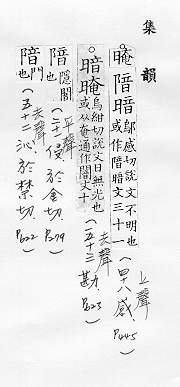 集韻
。晻隌暗 鄔感切說文不明也
或作隌暗文三十一
上聲
(四十八感. P445)
。暗晻 烏紺切說文日無光也
或从奄通作闇文十
去聲
(五十三勘. P623)
隌 隱闇
平聲
(二十一侵 於金切. P279)
隌 也
去聲
(五十二沁. 於禁切. P622)